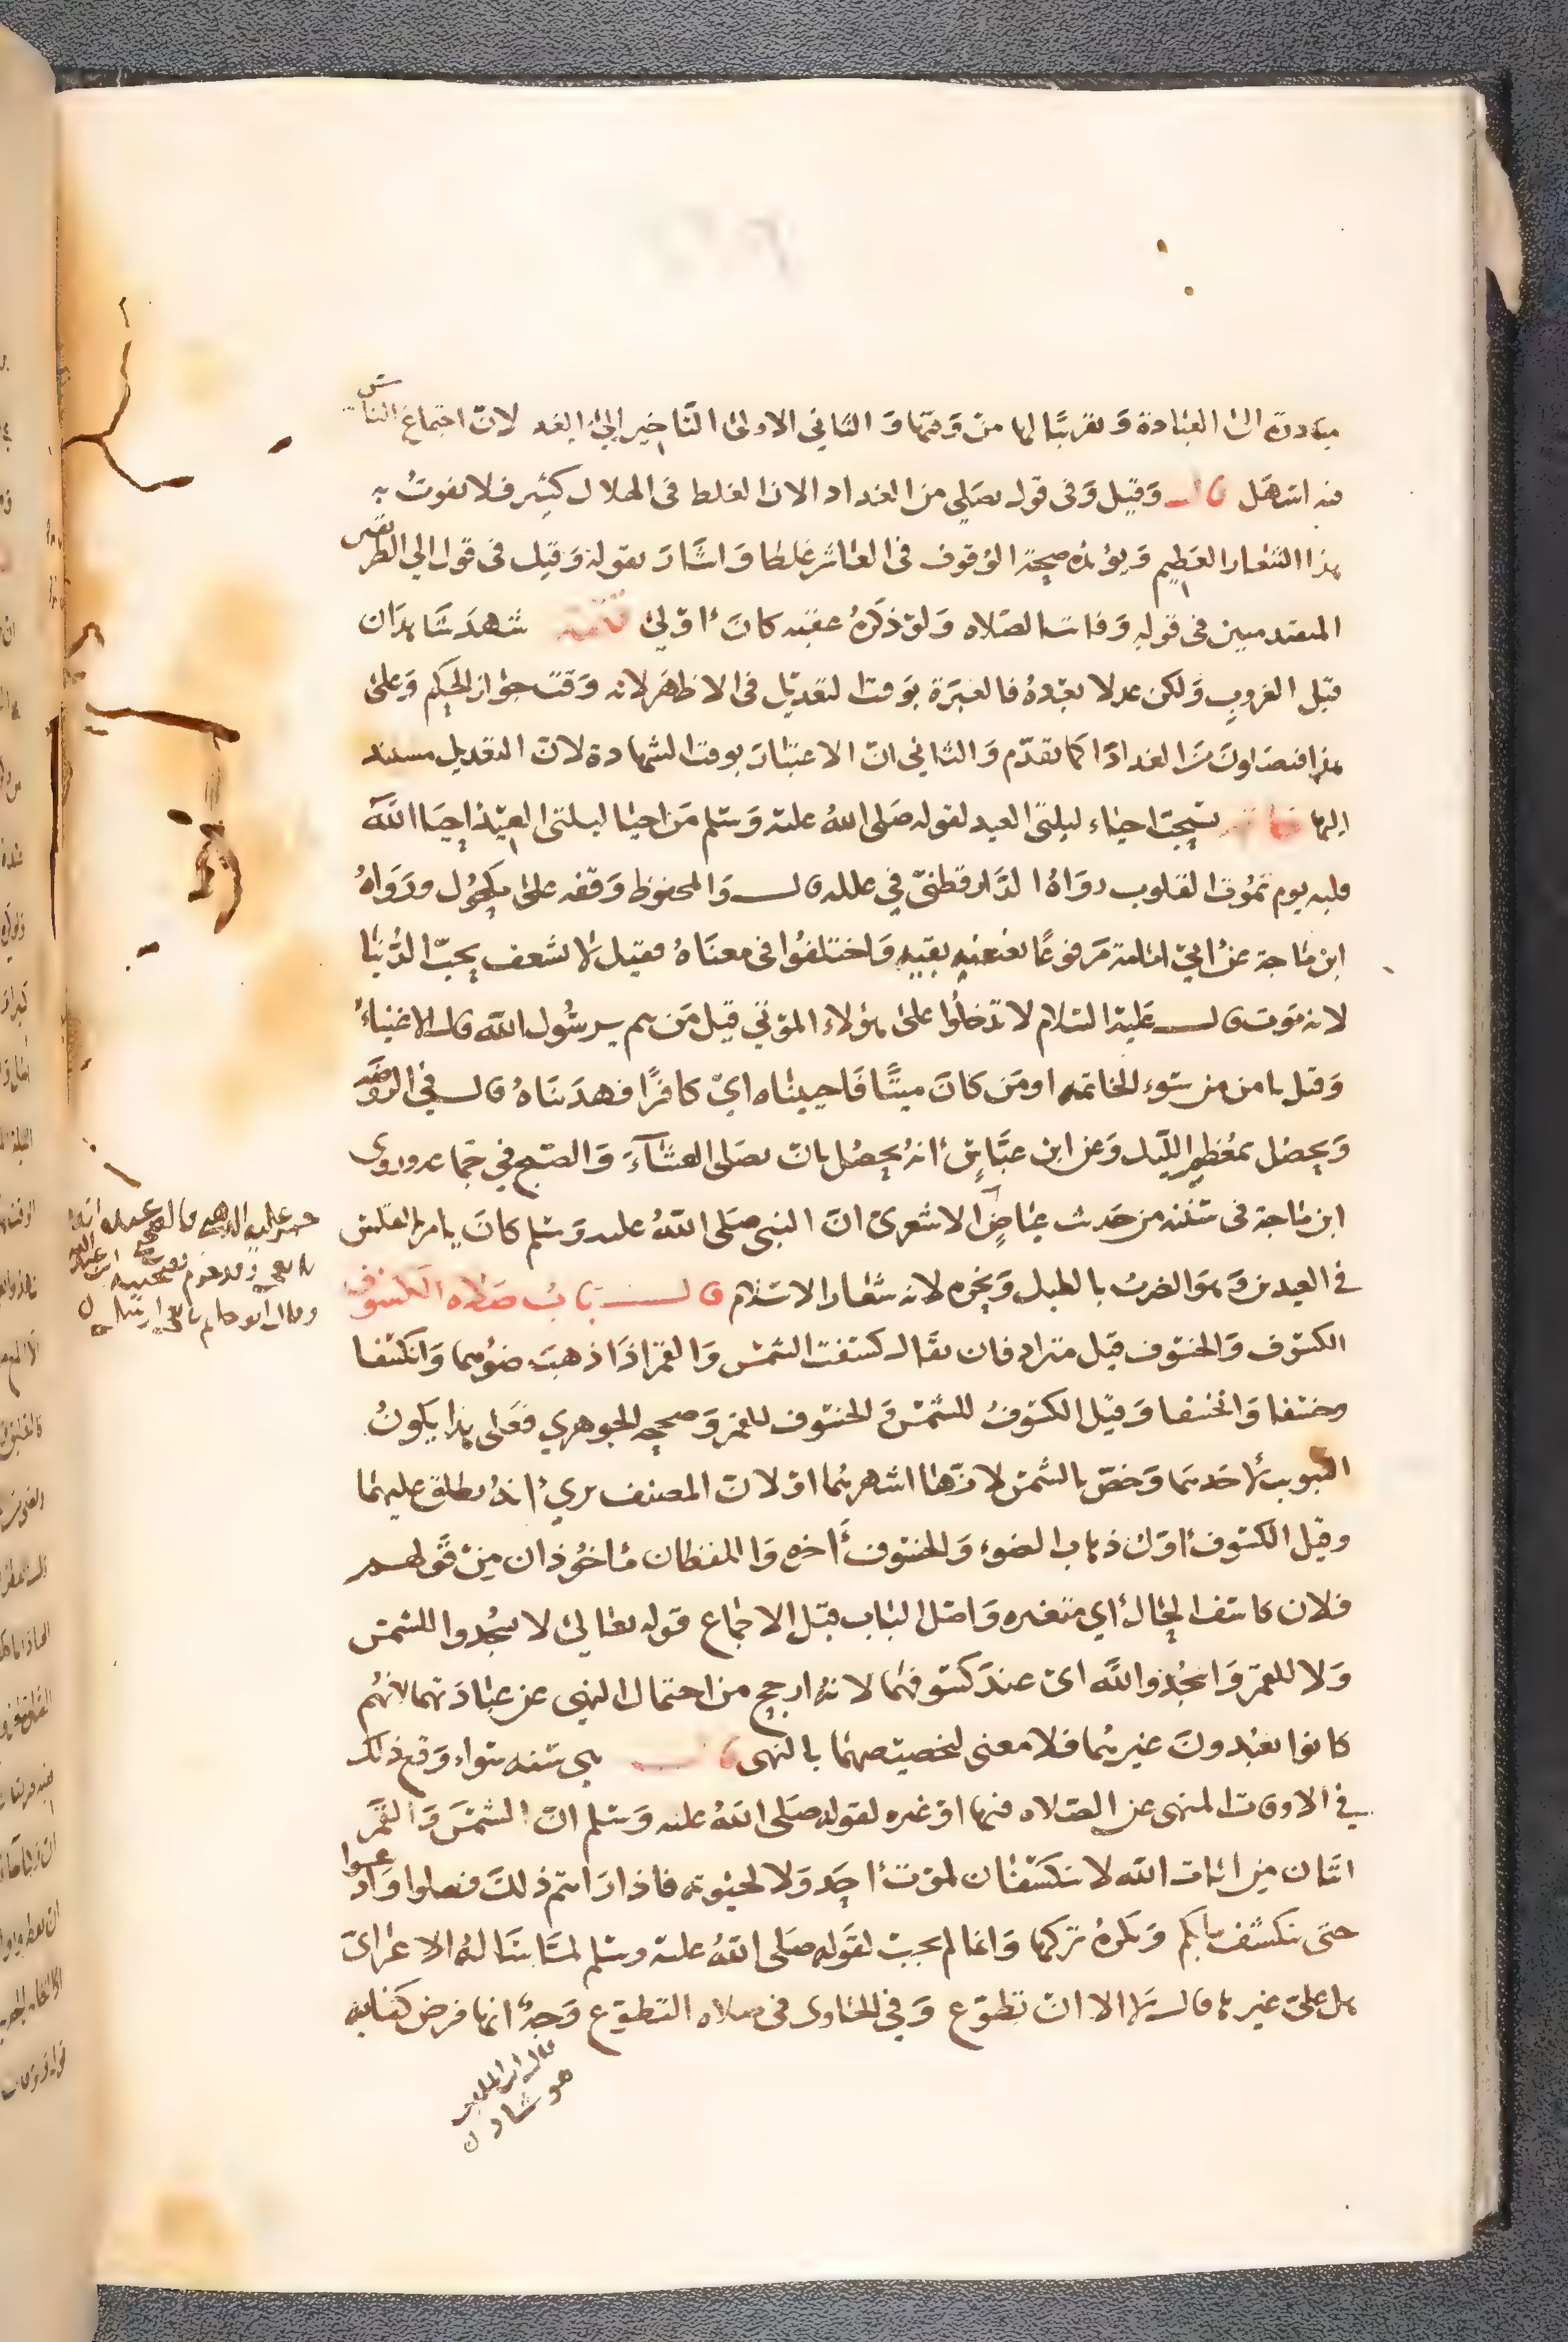 مبادرة الى العبادة وتقريبًا لها من وقتها والثاني الاولى التاخير الى الغد لانّ اجتماع الناس
فيه اسهل قال وقيل وفى قول يصلى من الغد اداء لان الغلط فى الهلال كثير فلا يفوت به
هذا الشعار العظيم ويؤيده صحة الوقوف فى العاشر غلطا واشار بقوله وقيل فى قول الى الطريقين
المتقدمين فى قوله وفاتت الصلاه ولو ذكره عقبه كان اولى تتمة شهد شاهدان
قبل الغروب ولكن عدلا بعده فالعبرة بوقت التعديل فى الاظهر لانه وقت جواز الحكم وعلى
هذا فيصلون من الغد اداء كما تقدّم والثاني انّ الاعتبار بوقت الشهادة لانّ التعديل مستند
اليها يستحبّ احياء ليلتى العيد لقوله صلى الله عليه وسلم من احيا ليلتى العيد احيا الله
قلبه يوم تموت القلوب رواه الدارقطنيّ في علله قال والمحفوظ وقفه على مكحول ورواه
ابن ماجة عن ابي امامة مرفوعًا بعنعنه بقيه واختلفوا فى معناه فقيل لا يشغف بحبّ الدّنيا
لانه موت قال عليه السلام لا تدخلوا على هؤلاء الموتى قيل من هم يرسول الله قال الاغنياء
وقيل يامن من سوء الخاتمه اومن كان ميتًا فاحييناه ايّ كافرًا فهديناه قال في الروضه
ويحصل بمعظم الليل وعن ابن عبّاس انه يحصل بان يصلى العشآء والصبح في جماعه وروى
ابن ماجة فى سننه من حديث عياض الاشعرى انّ النبي صلى الله عليه وسلم كان يامر بالتغليس
في العيدين وهو الضرب بالطبل ونحوه لانه شعار الاسلام قال باب صلاه الكسوف
الكسوف والخسوف قيل مترادفان يقال كسفت الشمس والقمر اذا ذهب ضوئهما وانكسفا
وخسفا وانخسفا وقيل الكسوف للشمس والخسوف للقمر وصححه الجوهري فعلى هذا يكون
التبويب لاحدهما وخصّ بالشمس لانها اشهرهما او لانّ المصنف يرى انه يطلق عليهما
وقيل الكسوف اوّل ذهاب الضوء والخسوف اخره واللفظان ماخوذان من قولهم
فلان كاسف الحال اي متغيره واصل الباب قبل الاجماع قوله تعالى لا تسجدوا للشمس
ولا للقمر واسجدوا لله اى عند كسوفهما لانه ارجح من احتمال النهى عن عبادتهما لانهم
كانوا يعبدون غيرهما فلا معنى لتخصيصهما بالنهى قال هى سنه سواء وقع ذلك
في الاوقات المنهى عن الصلاه فيها او غيره لقوله صلى الله عليه وسلم انّ الشمس والقمر
ايتان من ايات الله لا ينكسفان لموت احد ولا لحيوته فاذا رايتم ذلك فصلوا وادعوا
حتى ينكشف ما بكم ويكره تركها وانما لم يجب لقوله صلى الله عليه وسلم لمّا سأله الاعرابي
هل علىّ غيرها قال لا الا انّ تطوّع وفي الحاوى فى صلاه التطوّع وجهٌ انها فرض كفايه
قال ابن الملقن
هو شاذ